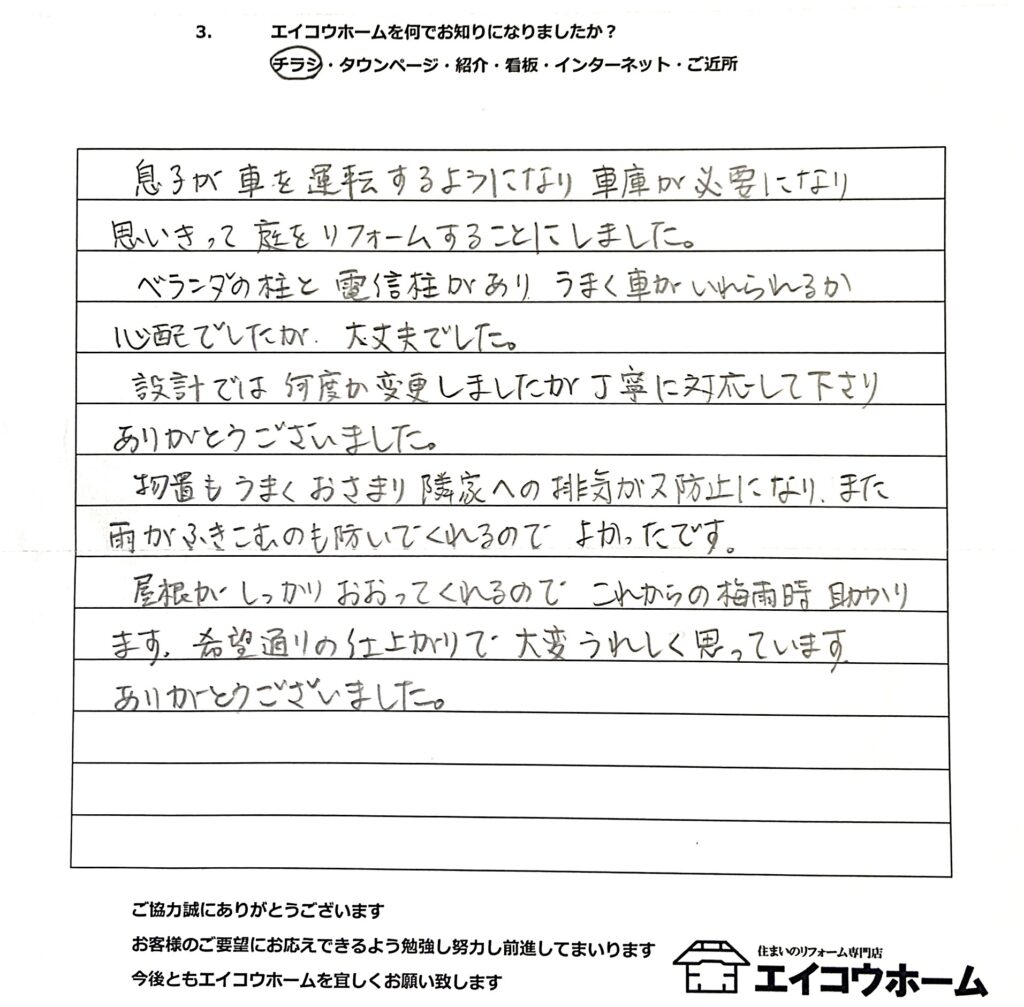 3. エイコウホームを何でお知りになりましたか？
チラシ・タウンページ・紹介・看板・インターネット・ご近所
息子が車を運転するようになり車庫が必要になり
思いきって庭をリフォームすることにしました。
ベランダの柱と電信柱があり うまく車がいれられるか
心配でしたが、大丈夫でした。
設計では何度か変更しましたが丁寧に対応して下さり
ありがとうございました。
物置もうまくおさまり隣家への排気ガス防止になり、また
雨がふきこむのも防いでくれるので よかったです。
屋根がしっかりおおってくれるので これからの梅雨時助かり
ます。希望通りの仕上がりで 大変うれしく思っています。
ありがとうございました。
ご協力誠にありがとうございます
お客様のご要望にお応えできるよう勉強し努力し前進してまいります
今後ともエイコウホームを宜しくお願い致します
住まいのリフォーム専門店
エイコウホーム